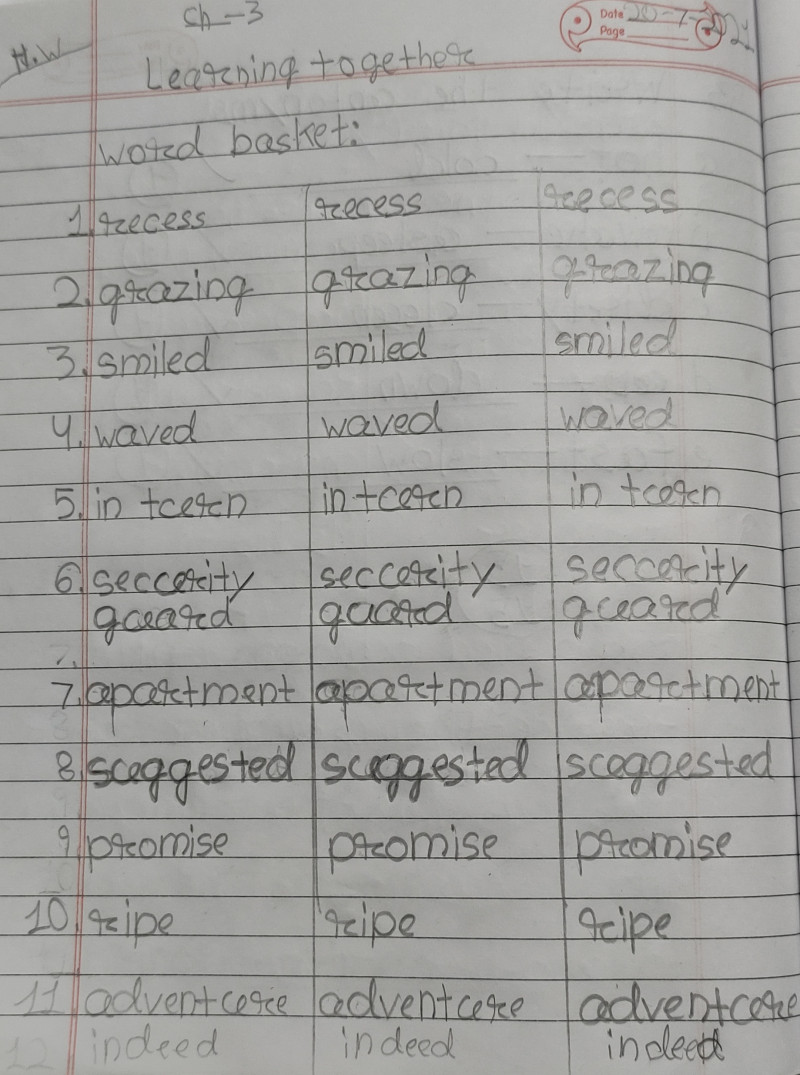 Ch-3
Date
Page
H.W
Learning together
Word basket:
1. recess recess recess
2. grazing grazing grazing
3. smiled smiled smiled
4. waved waved waved
5. in turn in turn in turn
6. security security security
guard guard guard
7. apartment apartment apartment
8. suggested suggested suggested
9. promise promise promise
10. ripe ripe ripe
11. adventure adventure adventure
12 indeed indeed indeed